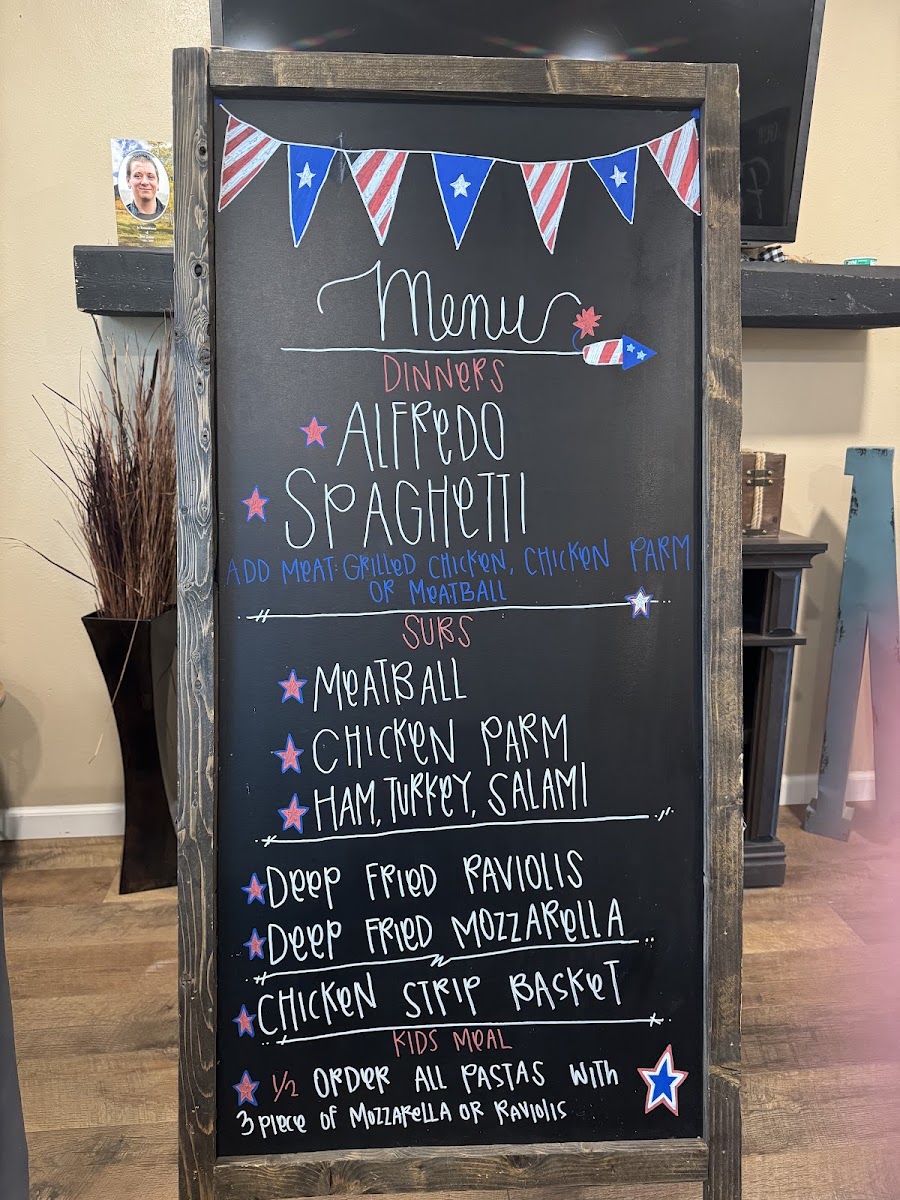 Menu
DINNERS
ALFREDO
SPAGHETTI
ADD MEAT: GRILLED CHICKEN, CHICKEN PARM
OR MEATBALL
SUBS
MEATBALL
CHICKEN PARM
HAM, TURKEY, SALAMI
DEEP FRIED RAVIOLIS
DEEP FRIED MOZZARELLA
CHICKEN STRIP BASKET
KIDS MEAL
1/2 ORDER ALL PASTAS WITH
3 PIECE OF MOZZARELLA OR RAVIOLIS